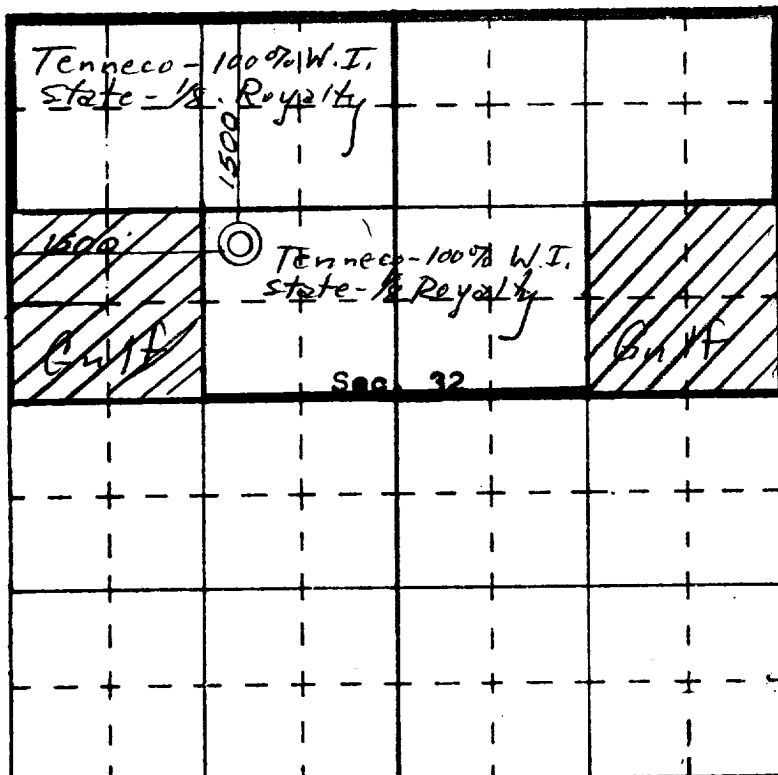 Tenneco - 100% W.I.
State - 1/8 Royalty
1500
1500'
Tenneco - 100% W.I.
State - 1/8 Royalty
Gulf
Gulf
Sec. 32